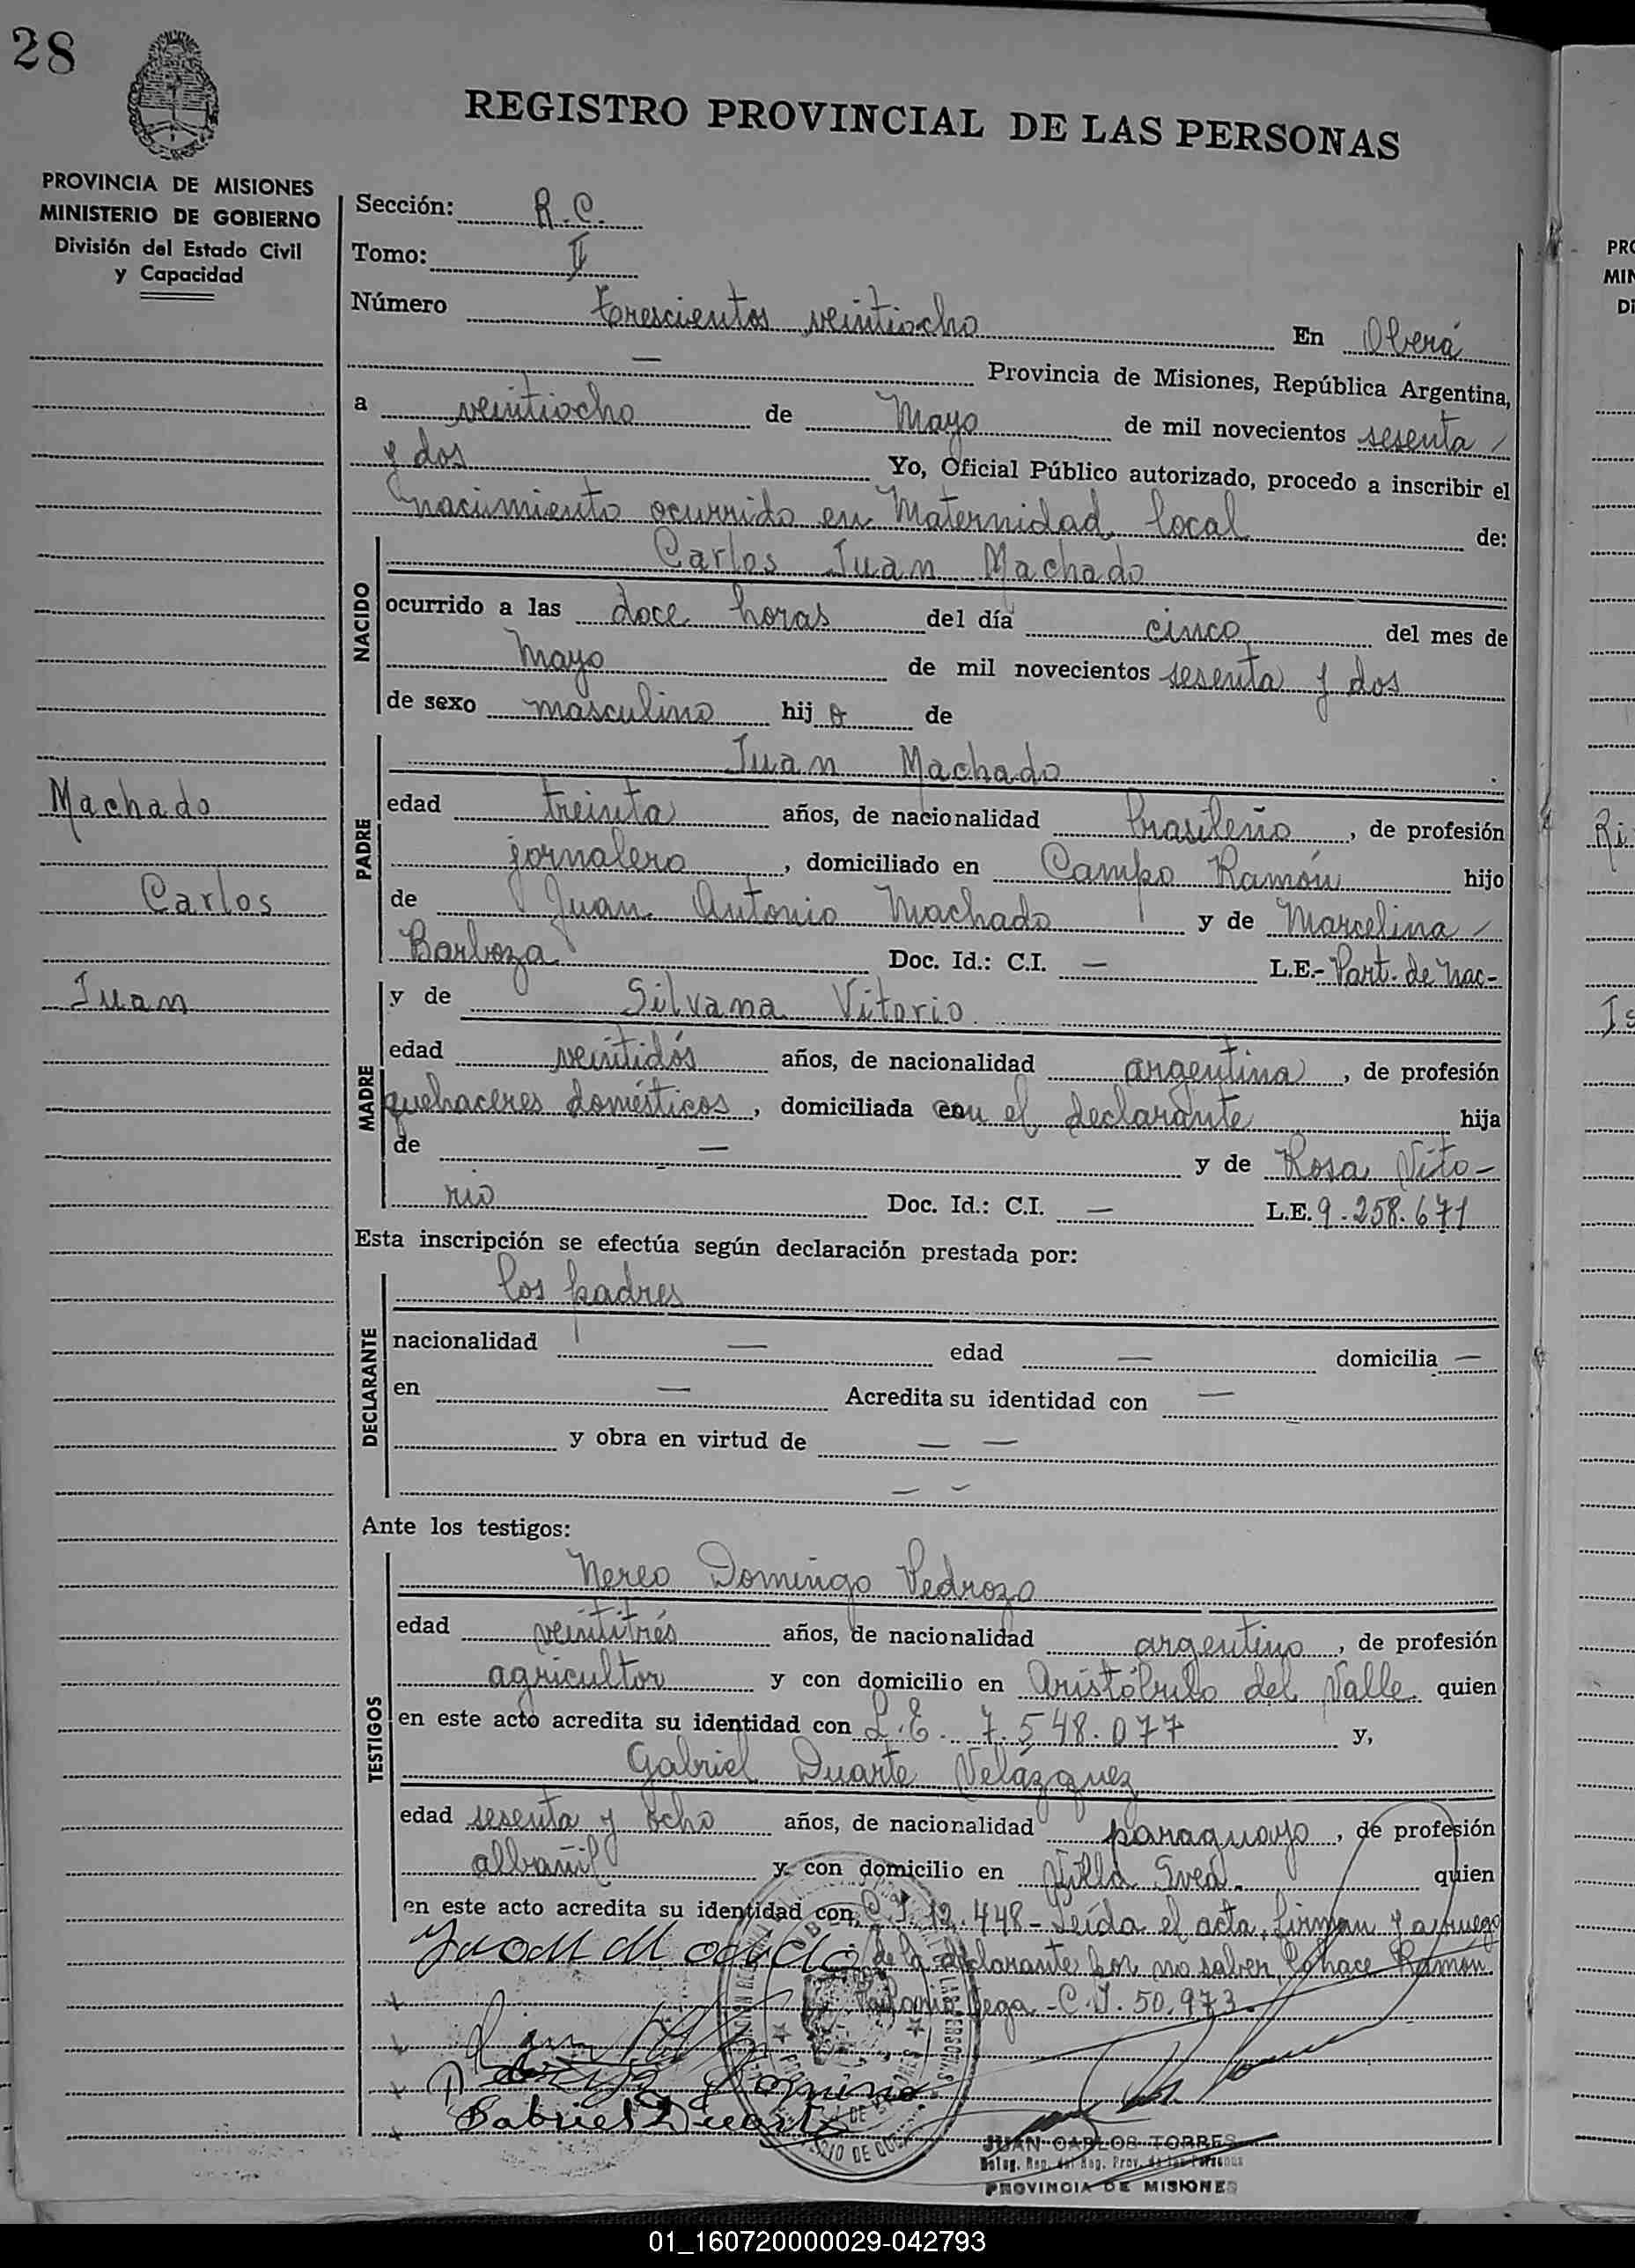 28
REGISTRO PROVINCIAL DE LAS PERSONAS
PROVINCIA DE MISIONES
MINISTERIO DE GOBIERNO
División del Estado Civil
y Capacidad
Sección: R.C.
Tomo: II
Número trescientos veintiocho En Oberá
— Provincia de Misiones, República Argentina,
a veintiocho de Mayo de mil novecientos sesenta
y dos Yo, Oficial Público autorizado, procedo a inscribir el
nacimiento ocurrido en Maternidad local de:
NACIDO
Carlos Juan Machado
ocurrido a las doce horas del día cinco del mes de
Mayo de mil novecientos sesenta y dos
de sexo masculino hijo de
PADRE
Juan Machado
edad treinta años, de nacionalidad brasileño, de profesión
jornalero, domiciliado en Campo Ramón hijo
de Juan Antonio Machado y de Marcelina
Barboza Doc. Id.: C.I. — L.E.- Part. de Nac-
Machado
Carlos
Juan
MADRE
y de Silvana Vitorio
edad veintidós años, de nacionalidad argentina, de profesión
quehaceres domésticos, domiciliada con el declarante hija
de — y de Rosa Vito-
rio Doc. Id.: C.I. — L.E. 9.258.671
Esta inscripción se efectúa según declaración prestada por:
DECLARANTE
los padres
nacionalidad — edad — domicilia —
en — Acredita su identidad con —
y obra en virtud de — —
— —
Ante los testigos:
TESTIGOS
Nereo Domingo Pedrozo
edad veintitrés años, de nacionalidad argentino, de profesión
agricultor y con domicilio en Aristóbulo del Valle quien
en este acto acredita su identidad con L.E. 7.548.077 y,
Gabriel Duarte Velázquez
edad sesenta y ocho años, de nacionalidad paraguayo, de profesión
albañil y con domicilio en Villa Svea. quien
en este acto acredita su identidad con C.I. 12.448- Leída el acta, firman y a ruego
Juan Machado de la declarante por no saber, lo hace Ramón
Vega - C.I. 50.973.
Gabriel Duarte
JUAN CARLOS TORRES
Deleg. Reg. del Reg. Prov. de las Personas
PROVINCIA DE MISIONES
01_160720000029-042793